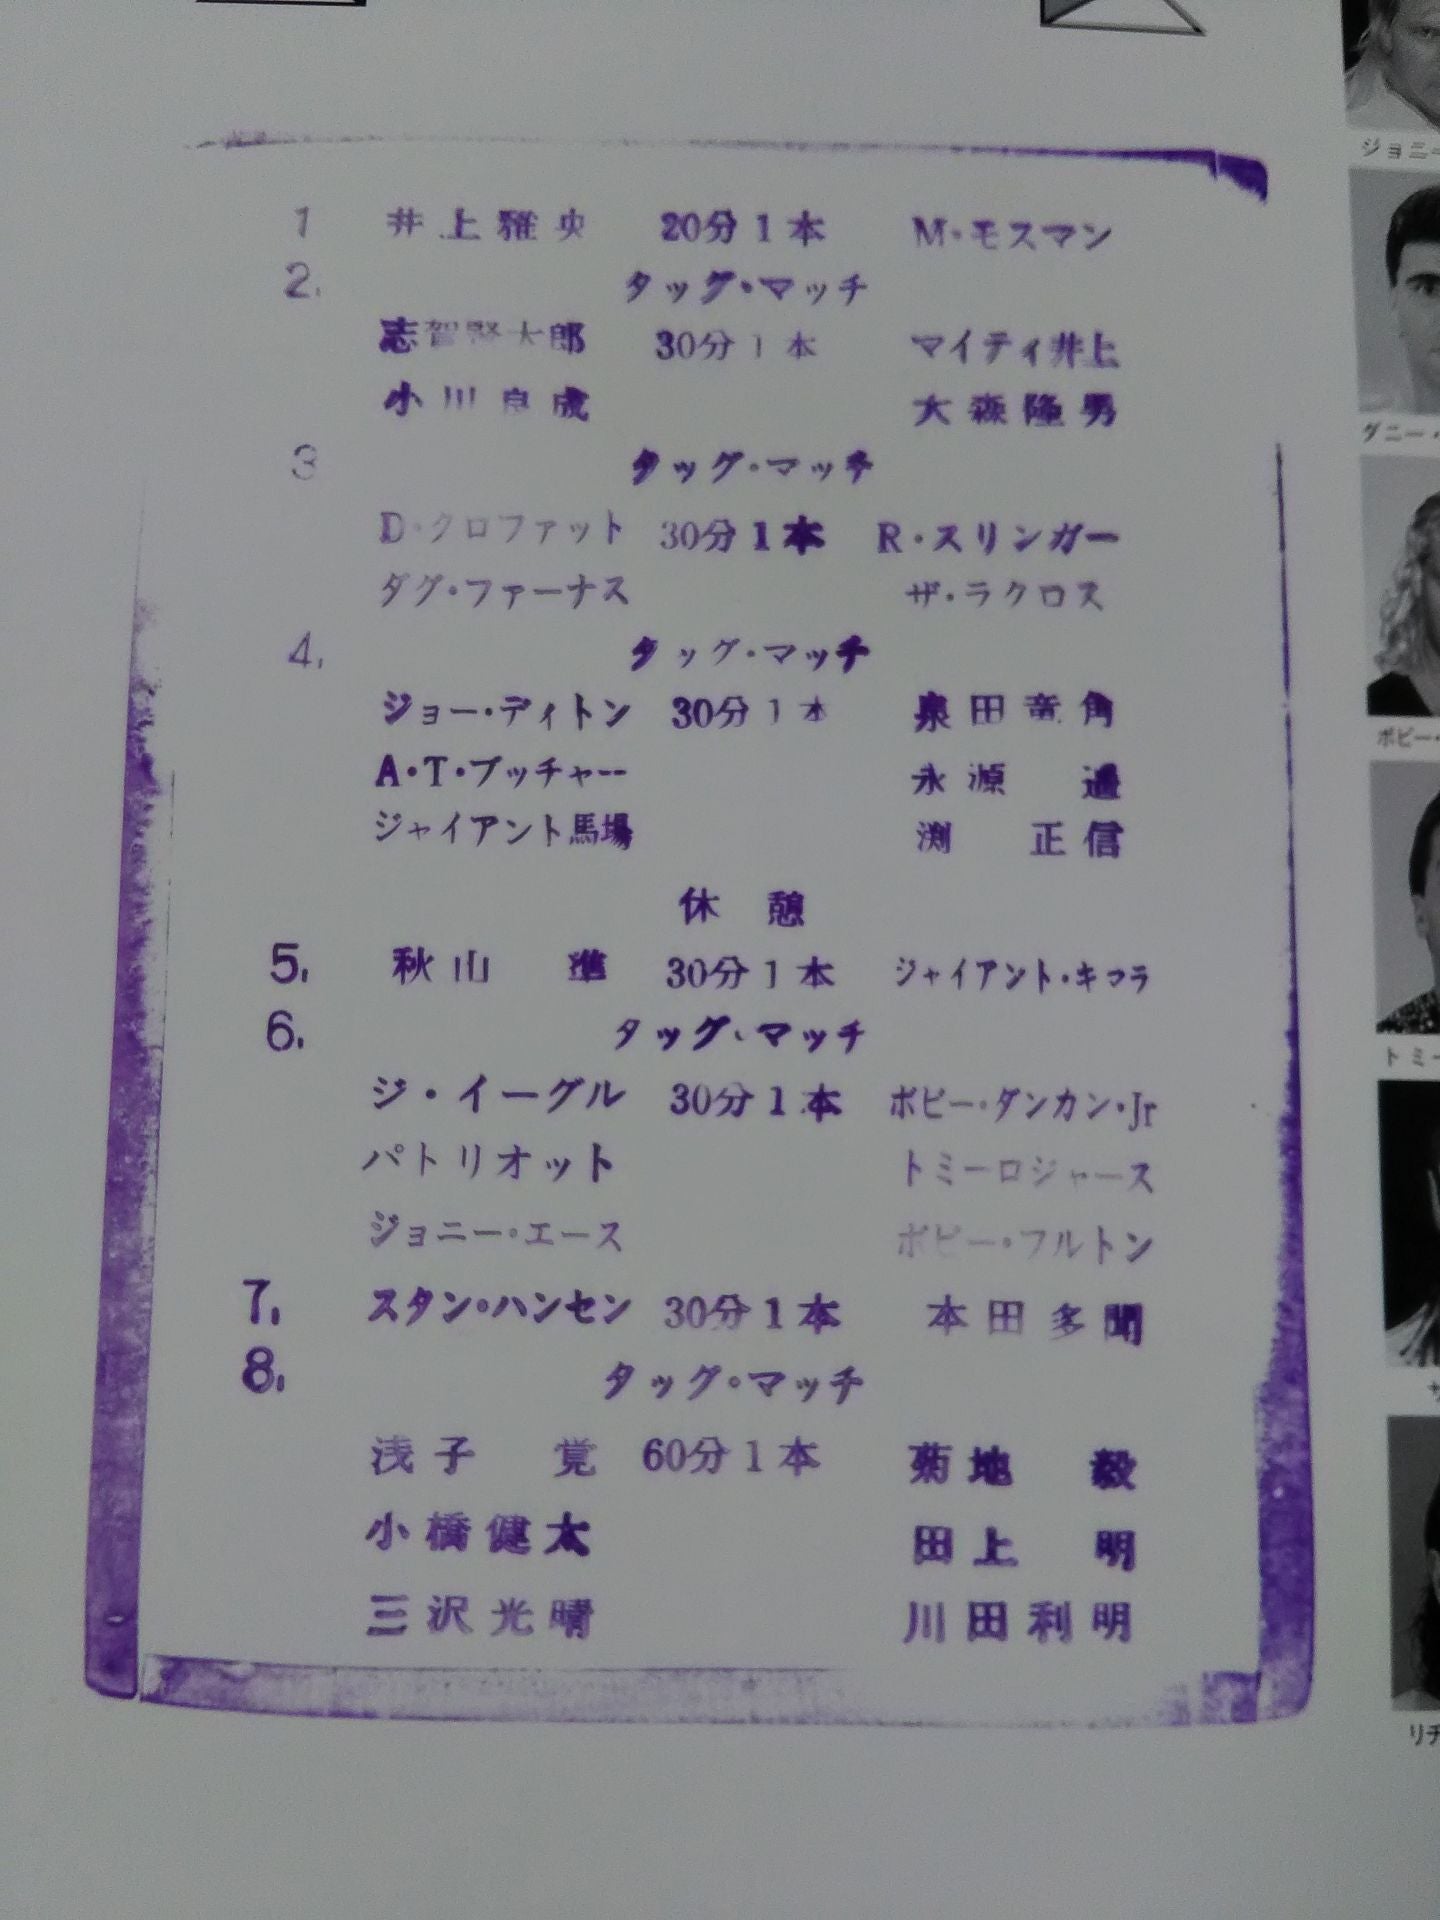 1 井上雅央 20分1本 M・モスマン
2. タッグ・マッチ
志賀賢太郎 30分1本 マイティ井上
小川良成 大森隆男
3 タッグ・マッチ
D・クロファット 30分1本 R・スリンガー
ダグ・ファーナス ザ・ラクロス
4. タッグ・マッチ
ジョー・ディトン 30分1本 泉田竜角
A・T・ブッチャー 永源 遥
ジャイアント馬場 渕 正信
休憩
5. 秋山 準 30分1本 ジャイアント・キマラ
6. タッグ・マッチ
ジ・イーグル 30分1本 ボビー・ダンカン・Jr
パトリオット トミーロジャース
ジョニー・エース ボビー・フルトン
7. スタン・ハンセン 30分1本 本田多聞
8. タッグ・マッチ
浅子 覚 60分1本 菊地 毅
小橋健太 田上 明
三沢光晴 川田利明
ジョニー
ダニー・
ボビー・
トミー
リチ